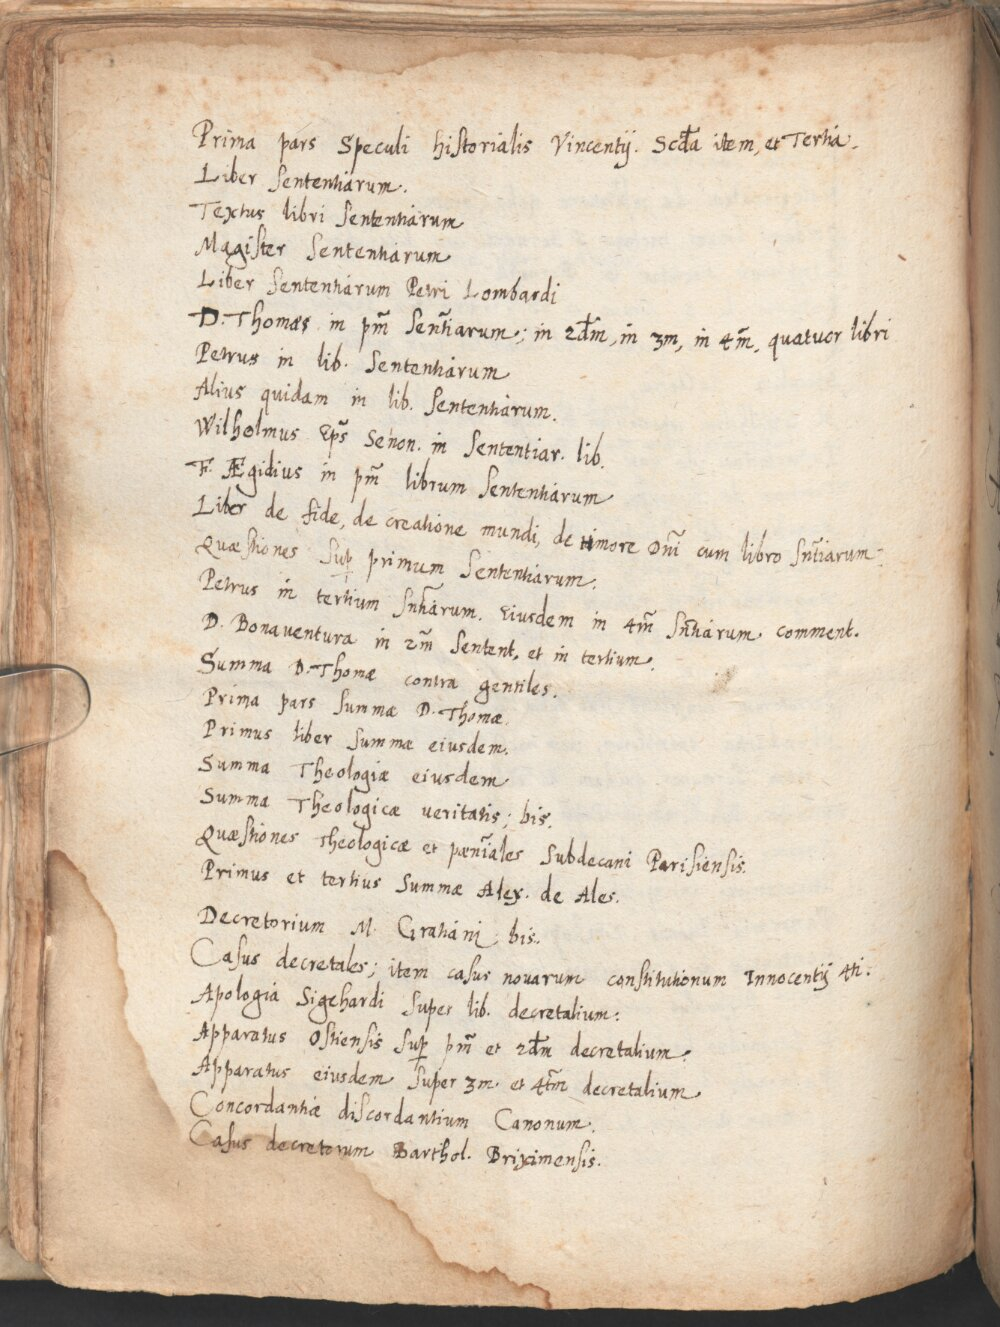 Prima pars Speculi historialis Vincentij. Scd̃a item, et Tertia.
Liber Sententiarum.
Textus libri Sententiarum
Magister Sententiarum
Liber Sententiarum Petri Lombardi
D. Thomas in pm̃ Sent̃iarum; in 2dm̃, in 3m, in 4m̃, quatuor libri
Petrus in lib. Sententiarum
Alius quidam in lib. Sententiarum.
Wilhelmus Ep̃s Senon. in Sententiar. lib.
F. Ægidius in pm̃ librum Sententiarum
Liber de fide, de creatione mundi, de timore Dñi cum libro Sñtiarum.
Quæstiones Sup̱ primum Sententiarum.
Petrus in tertium Sñtiarum. Eiusdem in 4m̃ Sñtiarum comment.
D. Bonaventura in 2m̃ Sentent. et in tertium.
Summa D. Thomæ contra gentiles.
Prima pars Summæ D. Thomæ.
Primus liber Summæ eiusdem.
Summa Theologiæ eiusdem
Summa Theologicæ veritatis; bis.
Quæstiones Theologicæ et pœnĩales Subdecani Parisiensis.
Primus et tertius Summæ Alex. de Ales.
Decretorium M. Gratiani; bis.
Casus decretales; item casus novarum constitutionum Innocentij 4ti.
Apologia Sigehardi Super lib. decretalium.
Apparatus Ostiensis Sup̱ pm̃ et 2dm̃ decretalium.
Apparatus eiusdem Super 3m. et 4tm̃ decretalium
Concordantiæ discordantium Canonum.
Casus decretorum Barthol. Briximensis.